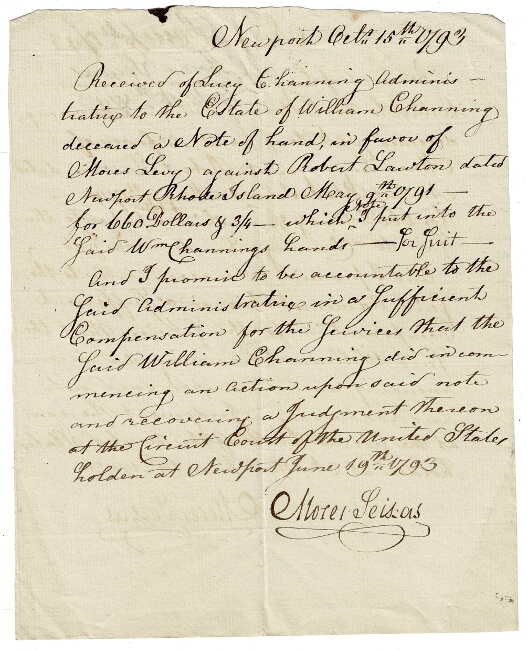 Newport Octr. 15th 1793
Received of Lucy Channing Adminis-
tratrix to the Estate of William Channing
deceared a Note of hand, in favor of
Moses Levy against Robert Lawton dated
Newport Rhode Island May 9th 1791 —
for 660 Dollars & 3/4 — which Note I put into the
Said Wm Channings hands — for Suit —
And I promise to be accountable to the
Said Administratrix in a Sufficient
Compensation for the Services that the
Said William Channing did in com
mencing an action upon said note
and recovering a Judgment thereon
at the Circuit Court of the United States
holden at Newport June 19th 1793
Moses Seixas